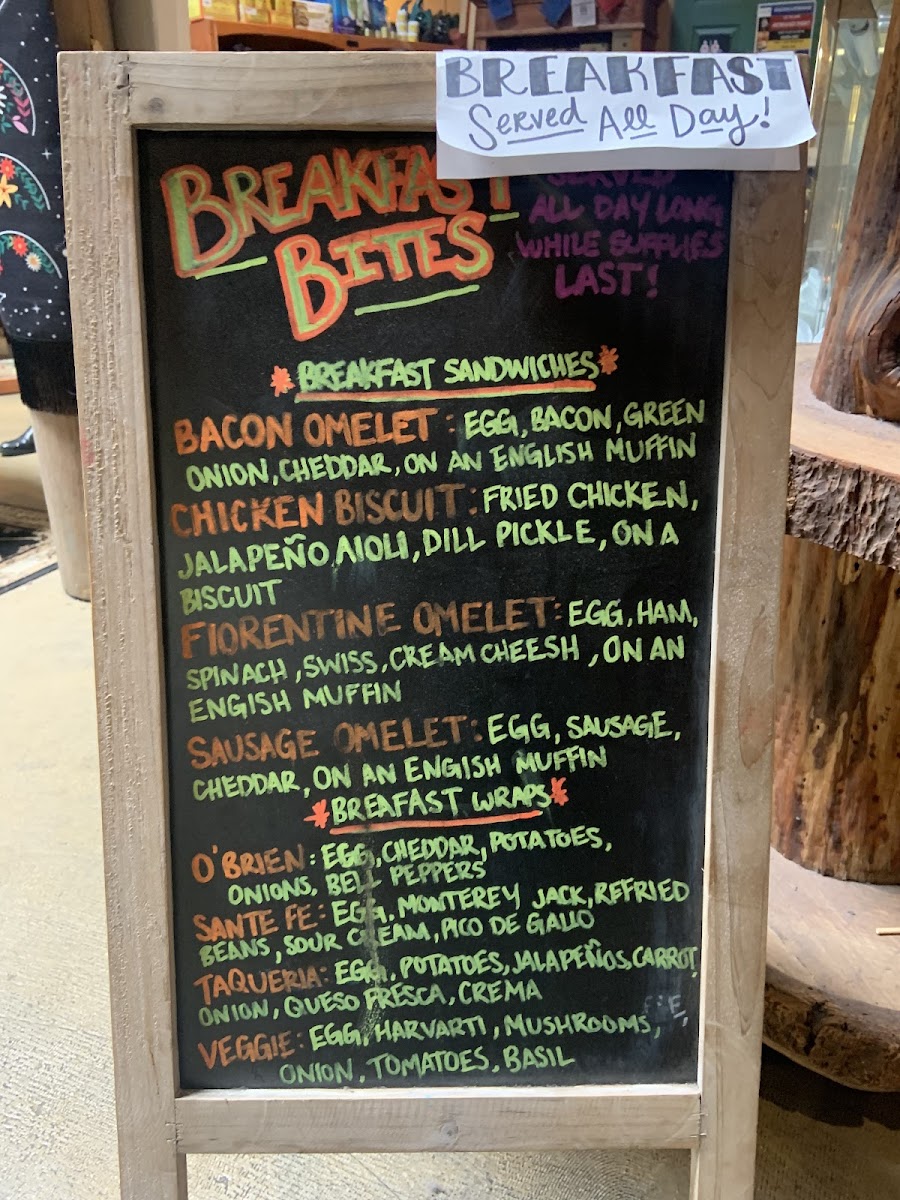 BREAKFAST
Served All Day!
BREAKFAST
BITES
SERVED
ALL DAY LONG
WHILE SUPPLIES
LAST!
BREAKFAST SANDWICHES
BACON OMELET: EGG, BACON, GREEN
ONION, CHEDDAR, ON AN ENGLISH MUFFIN
CHICKEN BISCUIT: FRIED CHICKEN,
JALAPEÑO AIOLI, DILL PICKLE, ON A
BISCUIT
FIORENTINE OMELET: EGG, HAM,
SPINACH, SWISS, CREAM CHEESH, ON AN
ENGISH MUFFIN
SAUSAGE OMELET: EGG, SAUSAGE,
CHEDDAR, ON AN ENGISH MUFFIN
BREAFAST WRAPS
O'BRIEN: EGG, CHEDDAR, POTATOES,
ONIONS, BELL PEPPERS
SANTE FE: EGG, MONTEREY JACK, REFRIED
BEANS, SOUR CREAM, PICO DE GALLO
TAQUERIA: EGG, POTATOES, JALAPEÑOS, CARROT,
ONION, QUESO FRESCA, CREMA
VEGGIE: EGG, HARVARTI, MUSHROOMS,
ONION, TOMATOES, BASIL